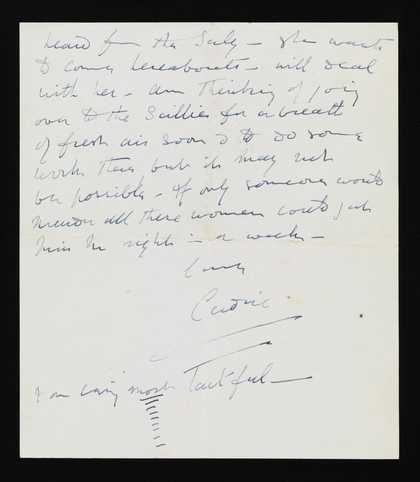 heard from the Sculy - she wants
to come hereabouts - will deal
with her - Am thinking of going
over to the Scillies for a breath
of fresh air soon & to do some
work there, but it may not
be possible - If only someone would
all these women could put
him to rights in a week -
Love
Cedric
I am being most Tactful -